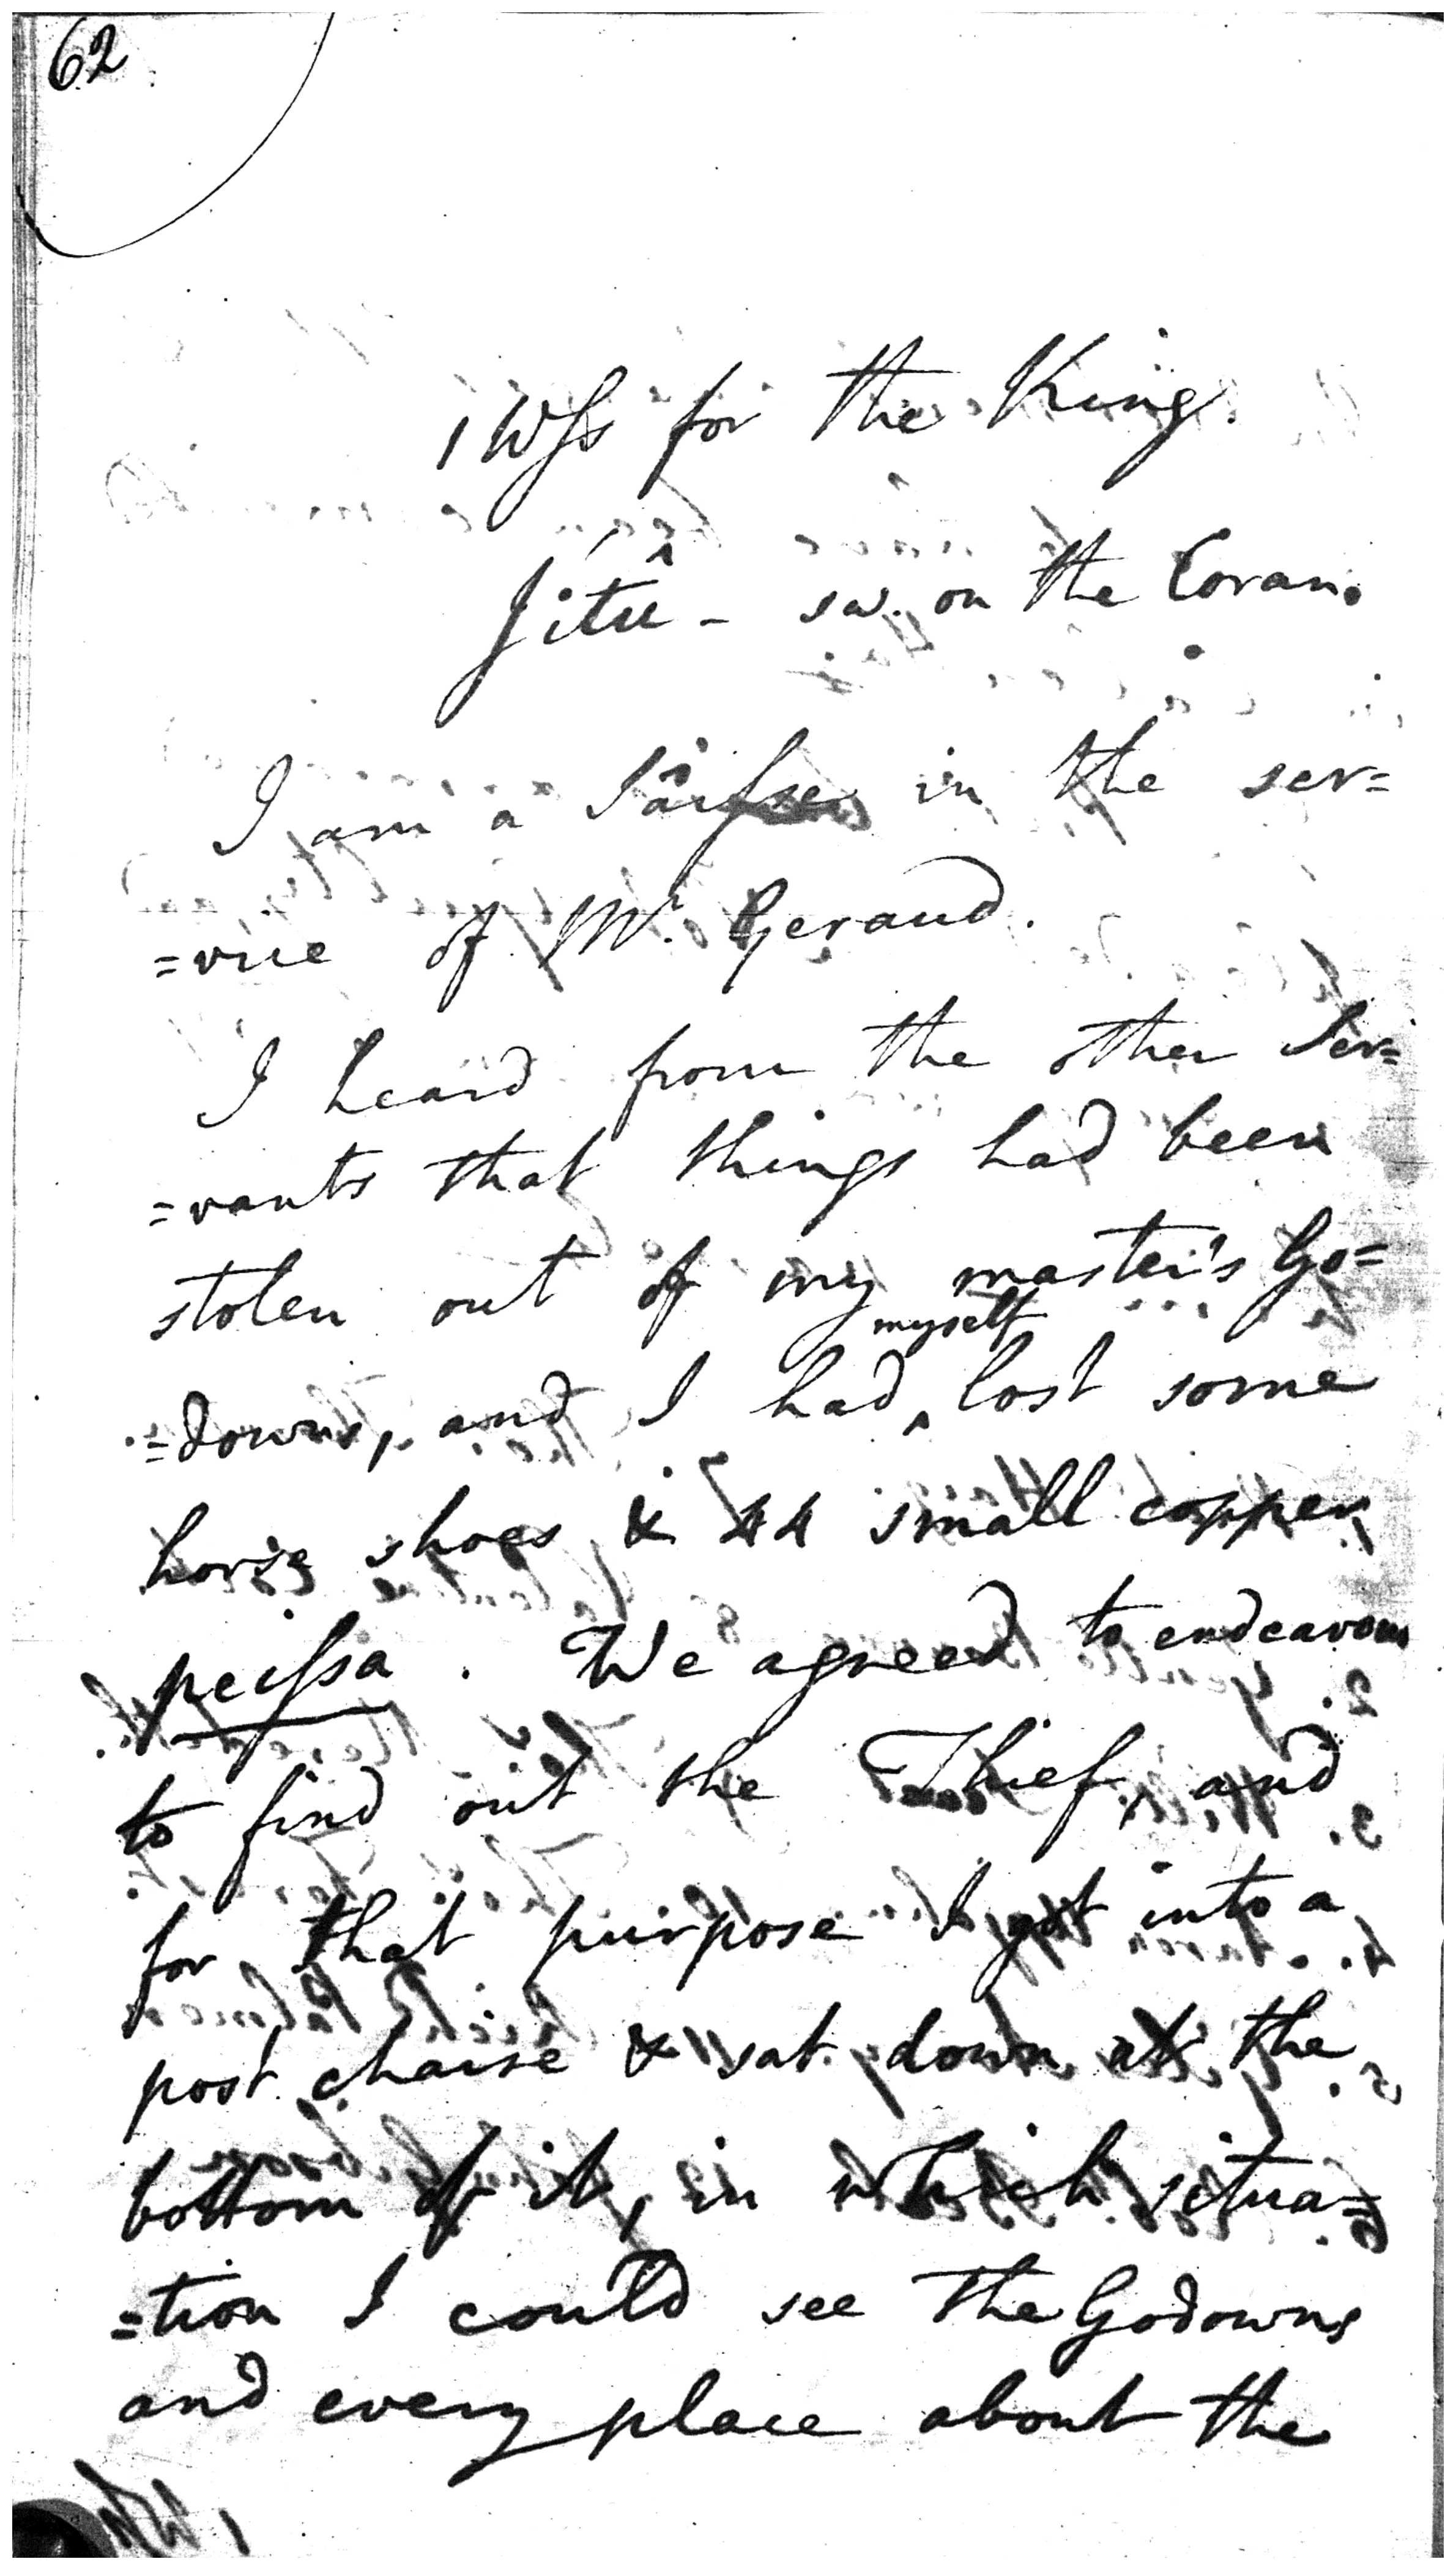 62
1 Wſs for the King.
Jítû - sw. on the Coran.
I am a Sâiſse in the ser=
=vice of Mr. Geraud.
I heard from the other Ser=
=vants that things had been
stolen out of my master's Go=
=downs, and I had ^myself lost some
horse shoes & 44 small copper
peiſsa. We agreed to endeavour
to find out the Thief, and
for that purpose I got into a
post chaise & sat down at the
bottom of it, in which situa=
=tion I could see the Godowns
and every place about the